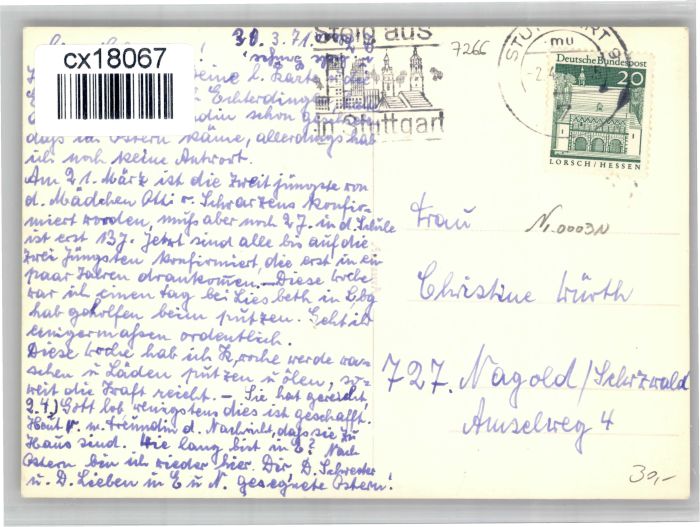 30.3.71
cx18067
Stolg aus
in Stuttgart
7266
STUTTGART 9
mu
Deutsche Bundespost
20
LORSCH/HESSEN
L. Karte
Echterdingen
schon
daß ich Ostern käme, allerdings hab
ich noch keine Antwort.
Am 21. März ist die zweitjüngste von
d. Mädchen Otti v. Schwarzens konfir-
miert worden, muß aber noch 2 J. in d. Schule
ist erst 13 J. Jetzt sind alle bis auf die
zwei Jüngsten konfirmiert, die erst in ein
paar Jahren drankommen. — Diese Woche
war ich einen Tag bei Liesbeth in Lbg
hab geholfen beim putzen. Geht ihr
einigermassen ordentlich.
Diese Woche hab ich K,woche werde wa-
schen u. Läden putzen u. ölen, so-
weit die Kraft reicht. — Sie hat gereicht,
2.4.) Gott lob wenigstens dies ist geschafft.
Heut v. m. Freundin d. Nachricht, daß sie zu
Haus sind. Wie lang bist in E? Nach
Ostern bin ich wieder hier. Dir, D. Schwester
u. D. Lieben in E u N. gesegnete Ostern!
Frau
N.0003N
Christine Würth
727. Nagold/Schwzwald
Amselweg 4
30,-